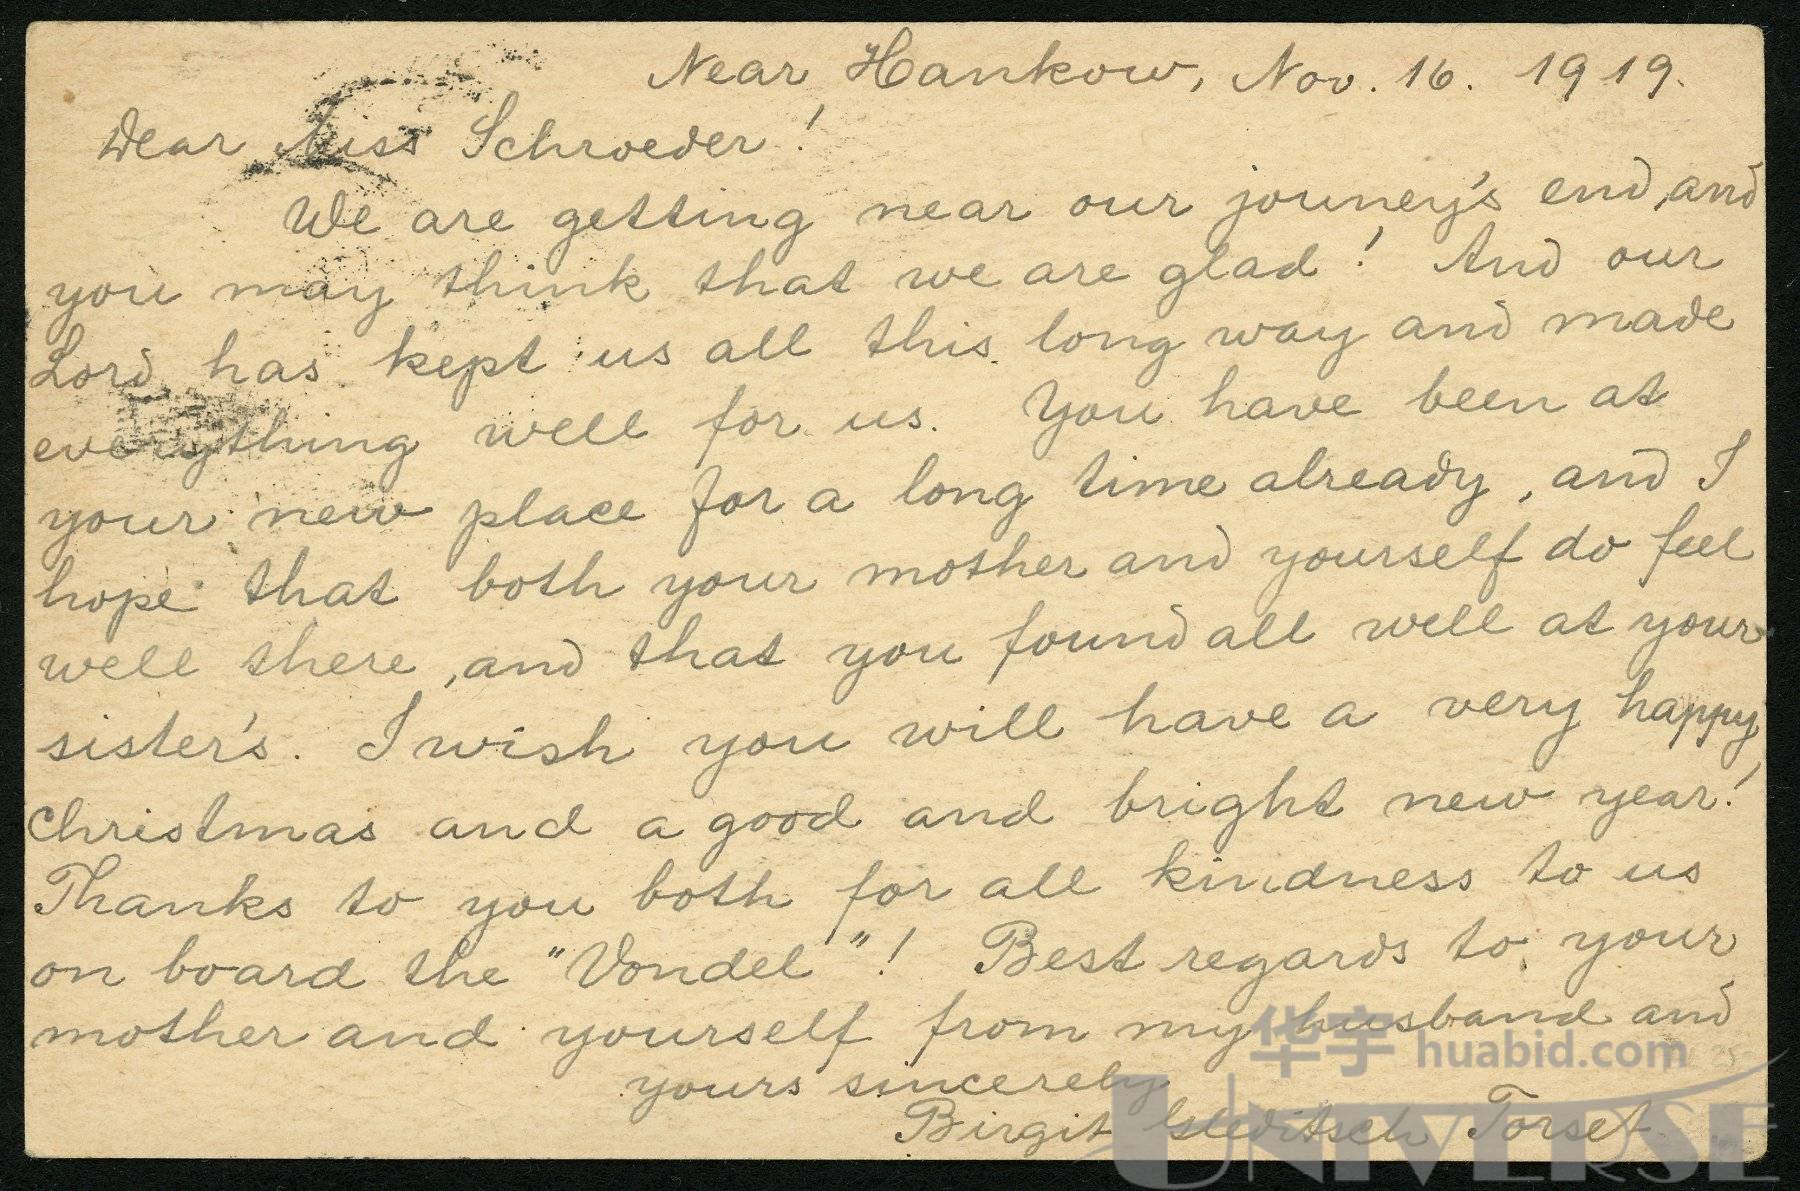 Near Hankow, Nov. 16. 1919.
Dear Miss Schroeder!
We are getting near our jouney's end, and
you may think that we are glad! And our
Lord has kept us all this long way and made
everything well for us. You have been at
your new place for a long time already, and I
hope that both your mother and yourself do feel
well there, and that you found all well at your
sister's. I wish you will have a very happy
christmas and a good and bright new year!
Thanks to you both for all kindness to us
on board the "Vondel"! Best regards to your
mother and yourself from my husband and
yours sincerely
Birgit Gleditsch Torset
华宇 huabid.com
UNIVERSE